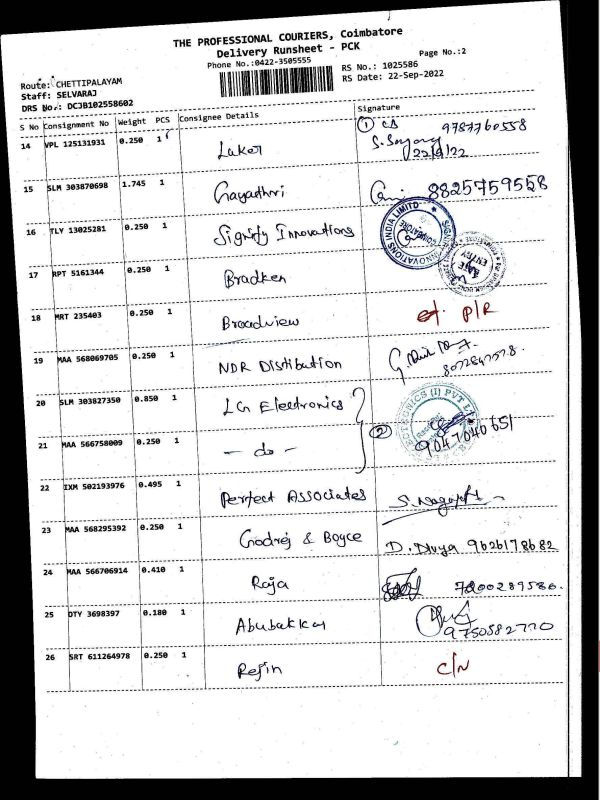 THE PROFESSIONAL COURIERS, Coimbatore
Delivery Runsheet - PCK
Phone No.:0422-3505555
Page No.:2
Route: CHETTIPALAYAM
Staff: SELVARAJ
DRS No.: DCJB102558602
RS No.: 1025586
RS Date: 22-Sep-2022
S No Consignment No Weight PCS Consignee Details Signature
14 VPL 125131931 0.250 1 Laker 1 9787760558
22/9/22
15 SLM 303870698 1.745 1 Gayathri 8825759558
16 TLY 13025281 0.250 1 Signify Innovations
INNOVATIONS INDIA LIMITED COIMBATORE
17 RPT 5161344 0.250 1 Bradken
DATE ENTRY
18 MRT 235403 0.250 1 Broadview P/R
19 MAA 568069705 0.250 1 NDR Distibution
20 SLM 303827350 0.850 1 LG Electronics
21 MAA 566758009 0.250 1 - do - 2 9047040651
22 IXM 502193976 0.495 1 Perfect Associates
23 MAA 568295392 0.250 1 Godrej & Boyce D. Divya 9626178682
24 MAA 566706914 0.410 1 Raja 7200289586.
25 OTY 3698397 0.180 1 Abubakkar 9750582770
26 SRT 611264978 0.250 1 Refin C/N